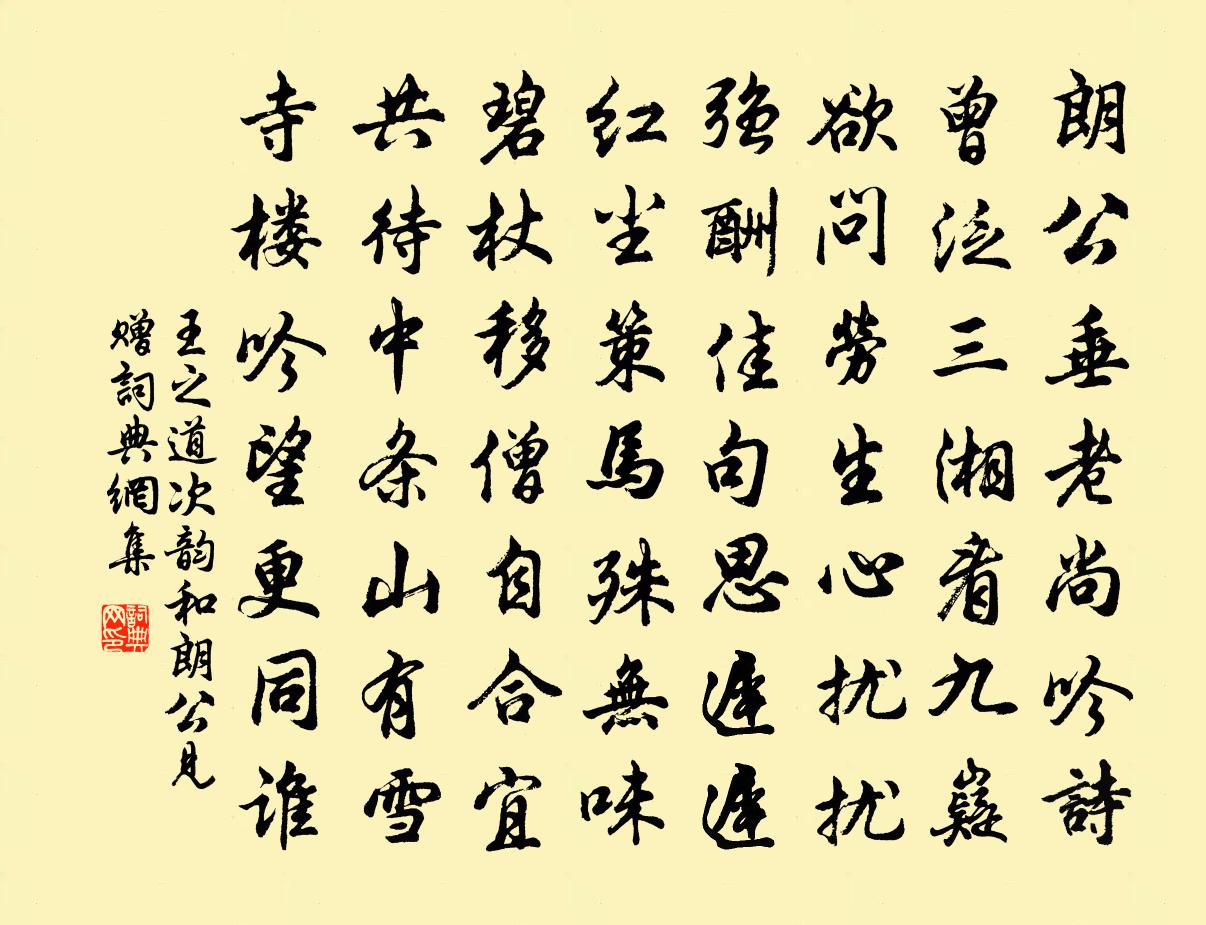 朗公垂老尚吟詩
曾泛三湘看九嶷
欲问勞生心扰扰
强酬佳句思遲遲
红尘策馬殊無味
碧杖移僧自合宜
共待中条山有雪
寺楼吟望更同谁
王之道次韵和朗公見
赠詞典網集
詞典
网印